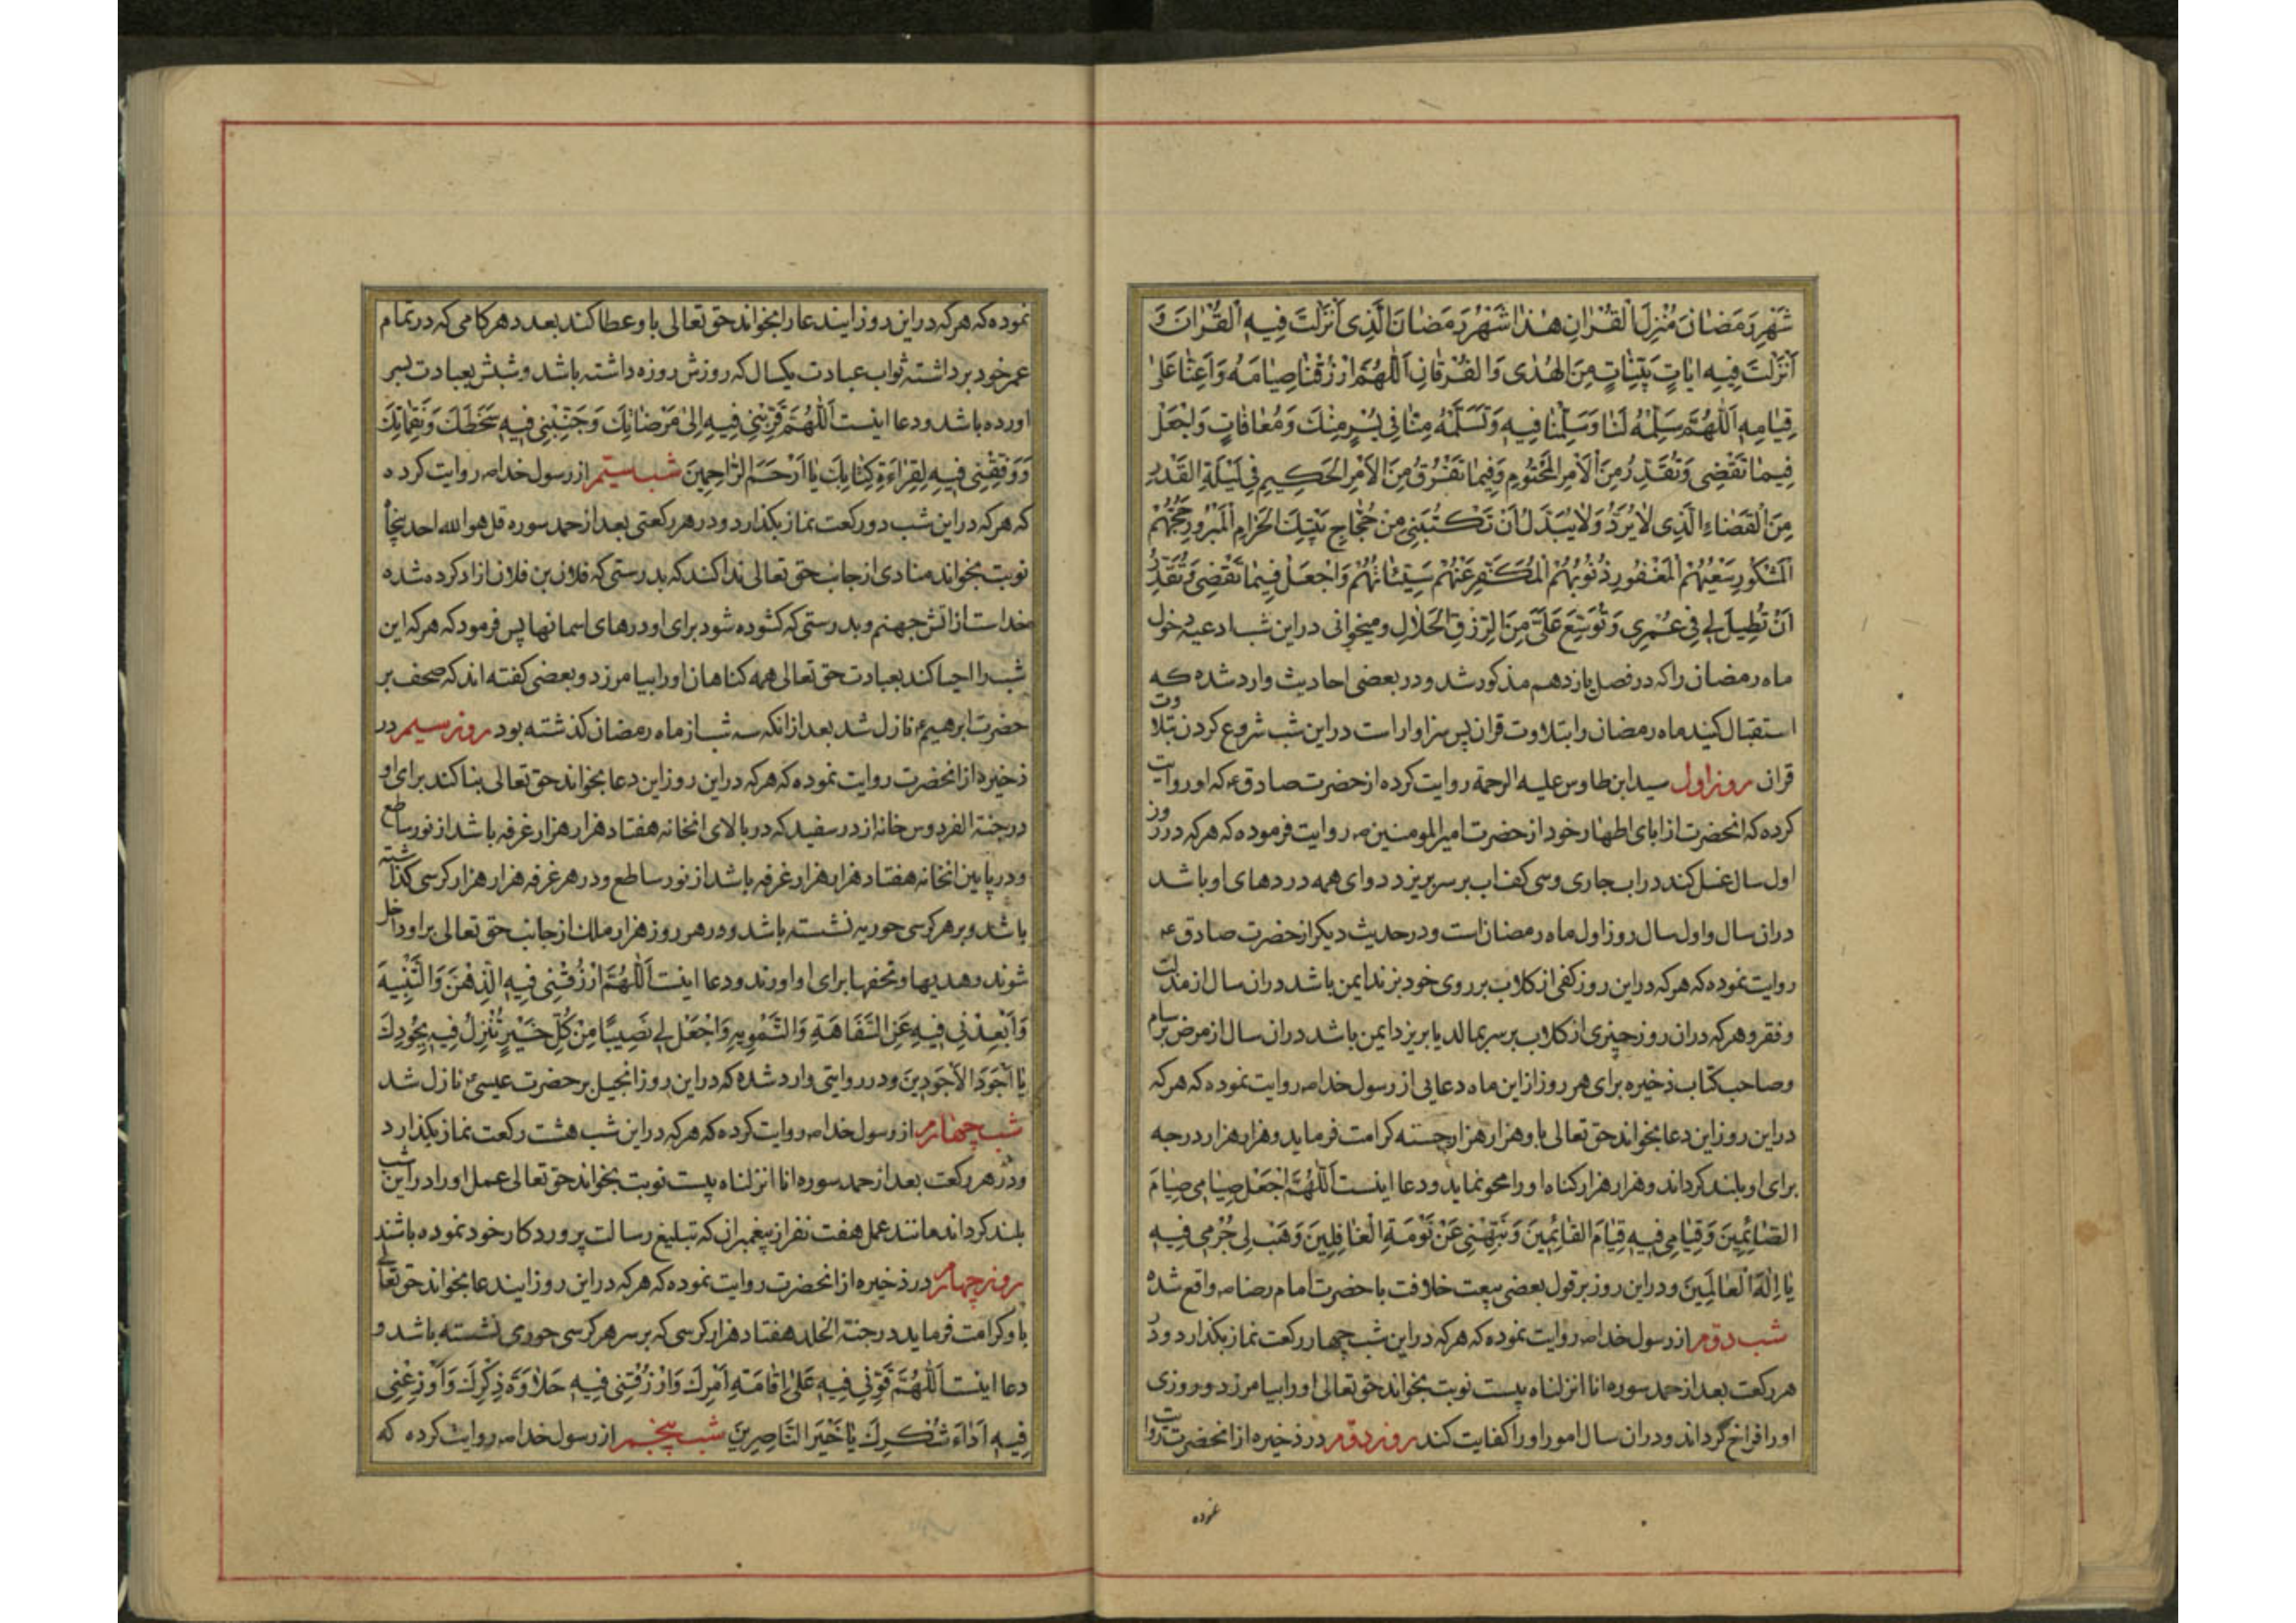 شَهْرِ رَمَضٰانَ مُنْزِلَ الْقُرْانِ هٰذٰا شَهْرُ رَمَضٰانَ الَّذِی اَنْزَلْتَ فِیهِ الْقُرْانَ وَ
اَنْزَلْتَ فِیهِ ایٰاتٍ بَیِّنٰاتٍ مِنَ الْهُدٰی وَالْفُرْقٰانِ اَللّٰهُمَّ ارْزُقْنٰا صِیٰامَهُ وَاَعِنّٰا عَلٰی
قِیٰامِهِ اَللّٰهُمَّ سَلِّمْهُ لَنٰا وَسَلِّمْنٰا فِیهِ وَتَسَلَّمْهُ مِنّٰا فِی یُسْرٍ مِنْكَ وَمُعٰافٰاتٍ وَاجْعَلْ
فِیمٰا تَقْضِی وَتُقَدِّرُ مِنَ الْاَمْرِ الْمَحْتُومِ وَفِیمٰا تَفْرُقُ مِنَ الْاَمْرِ الْحَكِیمِ فِی لَیْلَةِ الْقَدْرِ
مِنَ الْقَضٰاءِ الَّذِی لٰا یُرَدُّ وَلٰا یُبَدَّلُ اَنْ تَكْتُبَنِی مِنْ حُجّٰاجِ بَیْتِكَ الْحَرٰامِ الْمَبْرُورِ حَجُّهُمْ
الْمَشْكُورِ سَعْیُهُمْ الْمَغْفُورِ ذُنُوبُهُمْ الْمُكَفَّرِ عَنْهُمْ سَیِّئٰاتُهُمْ وَاجْعَلْ فِیمٰا تَقْضِی وَتُقَدِّرُ
اَنْ تُطِیلَ لِی فِی عُمْرِی وَتُوَسِّعَ عَلَیَّ مِنَ الرِّزْقِ الْحَلٰالِ و میخوانی در این شب ادعیه دخول
ماه رمضان را که در فصل یازدهم مذکور شد و در بعضی احادیث وارد شده که
استقبال کنید ماه رمضان را بتلاوت قران پس سزاوار است در این شب شروع کردن بتلاوت
قران روز اول سید ابن طاوس علیه الرحمة روایت کرده از حضرت صادق ع که او روایت
کرده که انحضرت از ابای اطهار خود از حضرت امیرالمومنین ص روایت فرموده که هر که در روز
اول سال غسل کند در اب جاری و سی کف اب بر سر بریزد دوای همه دردهای او باشد
در ان سال و اول سال روز اول ماه رمضان است و در حدیث دیگر از حضرت صادق ع
روایت نموده که هر که در این روز کفی از کلاب بر روی خود بزند ایمن باشد در ان سال از مذلت
و فقر و هر که در ان روز چیزی از کلاب بر سر بمالد یا بریزد ایمن باشد در ان سال از مرض برسام
و صاحب کتاب ذخیره برای هر روز از این ماه دعایی از رسول خدا ص روایت نموده که هر که
در این روز این دعا بخواند حق تعالی باو هزار هزار حسنه کرامت فرماید و هزار هزار درجه
برای او بلند کرداند و هزار هزار کناه او را محو نماید و دعا اینست اَللّٰهُمَّ اجْعَلْ صِیٰامِی صِیٰامَ
الصّٰائِمِینَ وَقِیٰامِی فِیهِ قِیٰامَ الْقٰائِمِینَ وَنَبِّهْنِی عَنْ نَوْمَةِ الْغٰافِلِینَ وَهَبْ لِی جُرْمِی فِیهِ
یٰا اِلٰهَ الْعٰالَمِینَ و در این روز بر قول بعضی بیعت خلافت با حضرت امام رضا ص واقع شده
شب دوم از رسول خدا ص روایت نموده که هر که در این شب چهار رکعت نماز بکذارد و در
هر رکعت بعد از حمد سوره انا انزلناه بیست نوبت بخواند حق تعالی او را بیامرزد و روزی
او را فراخ گرداند و در ان سال امور او را کفایت کند روز دوم در ذخیره از انحضرت روایت
نموده
نموده که هر که در این روز ایندعا را بخواند حق تعالی باو عطا کند بعدد هر کامی که در تمام
عمر خود برداشته ثواب عبادت یکسال که روزش روزه داشته باشد و شبش بعبادت بسر
اورده باشد و دعا اینست اَللّٰهُمَّ قَرِّبْنِی فِیهِ اِلٰی مَرْضٰاتِكَ وَجَنِّبْنِی فِیهِ سَخَطَكَ وَنَقِمٰاتِكَ
وَوَفِّقْنِی فِیهِ لِقِرٰاءَةِ كِتٰابِكَ یٰا اَرْحَمَ الرّٰاحِمِینَ شب سیم از رسول خدا ص روایت کرده
که هر که در این شب دو رکعت نماز بکذارد و در هر رکعتی بعد از حمد سوره قل هو الله احد پنجاه
نوبت بخواند منادی از جانب حق تعالی ندا کند که بدرستی که فلان بن فلان ازاد کرده شده
خداست از اتش جهنم و بدرستی که کشوده شود برای او درهای اسمانها پس فرمود که هر که این
شب را احیا کند بعبادت حق تعالی همه کناهان او را بیامرزد و بعضی کفته اند که صحف بر
حضرت ابرهیم ع نازل شد بعد از انکه سه شب از ماه رمضان کذشته بود روز سیم در
ذخیره از انحضرت روایت نموده که هر که در این روز این دعا بخواند حق تعالی بنا کند برای او
در جنة الفردوس خانه از در سفید که در بالای انخانه هفتاد هزار هزار غرفه باشد از نور ساطع
و در پایین انخانه هفتاد هزار هزار غرفه باشد از نور ساطع و در هر غرفه هزار هزار کرسی کذاشته
باشد و بر هر کرسی حوریه نشسته باشد و در هر روز هزار ملك از جانب حق تعالی بر او داخل
شوند و هدیها و تحفها برای او اورند و دعا اینست اَللّٰهُمَّ ارْزُقْنِی فِیهِ الذِّهْنَ وَالتَّنْبِیهَ
وَاَبْعِدْنِی فِیهِ عَنِ السَّفٰاهَةِ وَالتَّمْوِیهِ وَاجْعَلْ لِی نَصِیبًا مِنْ كُلِّ خَیْرٍ تُنْزِلُ فِیهِ بِجُودِكَ
یٰا اَجْوَدَ الْاَجْوَدِینَ و در روایتی وارد شده که در این روز انجیل بر حضرت عیسی ع نازل شد
شب چهارم از رسول خدا ص روایت کرده که هر که در این شب هشت رکعت نماز بکذارد
و در هر رکعت بعد از حمد سوره انا انزلناه بیست نوبت بخواند حق تعالی عمل او را در این شب
بلند کرداند مانند عمل هفت نفر از پیغمبران که تبلیغ رسالت پروردکار خود نموده باشند
روز چهارم در ذخیره از انحضرت روایت نموده که هر که در این روز ایندعا بخواند حق تعالی
باو کرامت فرماید در جنة الخلد هفتاد هزار کرسی که بر سر هر کرسی حوری نشسته باشد و
دعا اینست اَللّٰهُمَّ قَوِّنِی فِیهِ عَلٰی اِقٰامَةِ اَمْرِكَ وَارْزُقْنِی فِیهِ حَلٰاوَةَ ذِكْرِكَ وَاَوْزِعْنِی
فِیهِ اَدٰاءَ شُكْرِكَ یٰا خَیْرَ النّٰاصِرِینَ شب پنجم از رسول خدا ص روایت کرده که